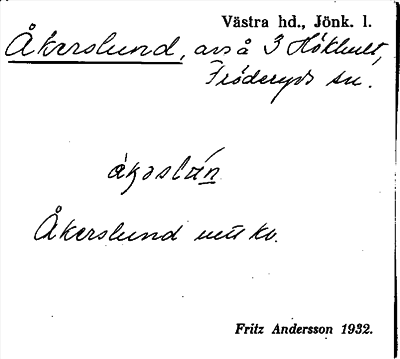 Västra hd., Jönk. l.
Åkerslund, avs å 3 Hökhult,
Fröderyds sn.
Åkerslund
Fritz Andersson 1932.